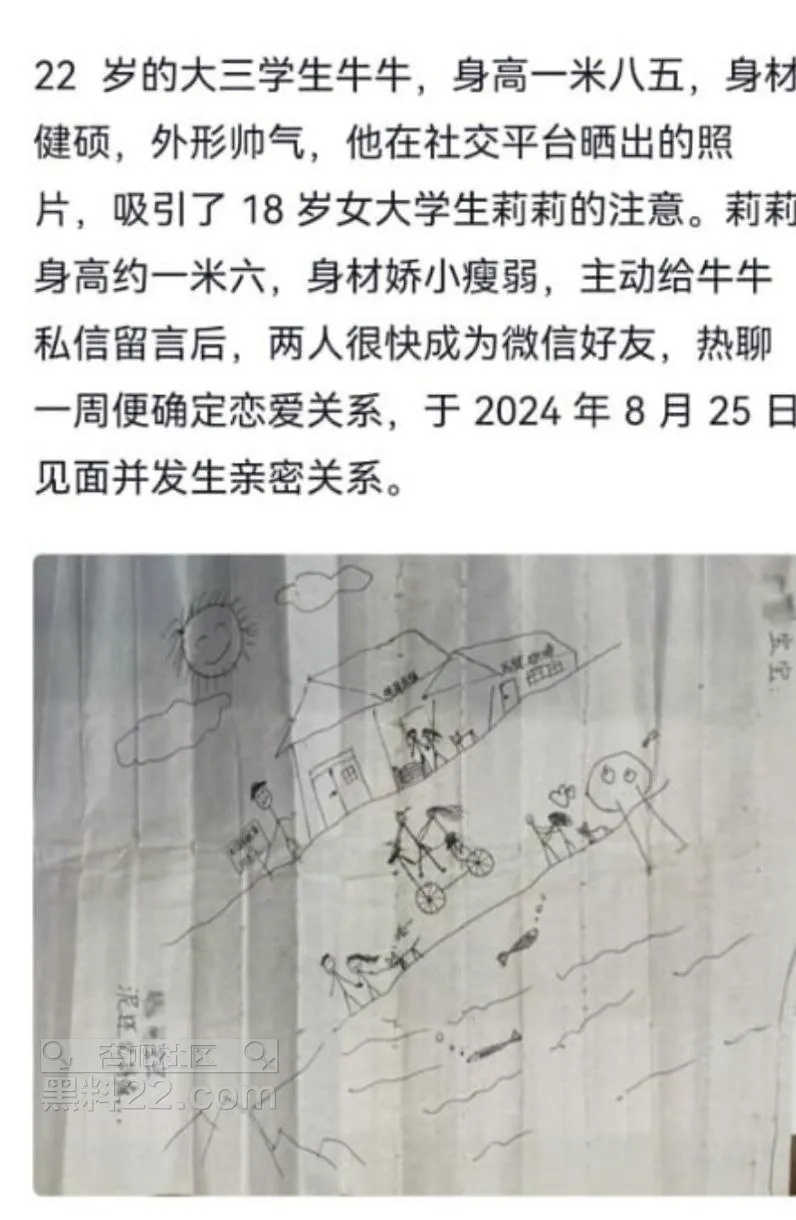 22 岁的大三学生牛牛，身高一米八五，身材
健硕，外形帅气，他在社交平台晒出的照
片，吸引了 18 岁女大学生莉莉的注意。莉莉
身高约一米六，身材娇小瘦弱，主动给牛牛
私信留言后，两人很快成为微信好友，热聊
一周便确定恋爱关系，于 2024 年 8 月 25 日
见面并发生亲密关系。
杏吧社区
黑料22.com